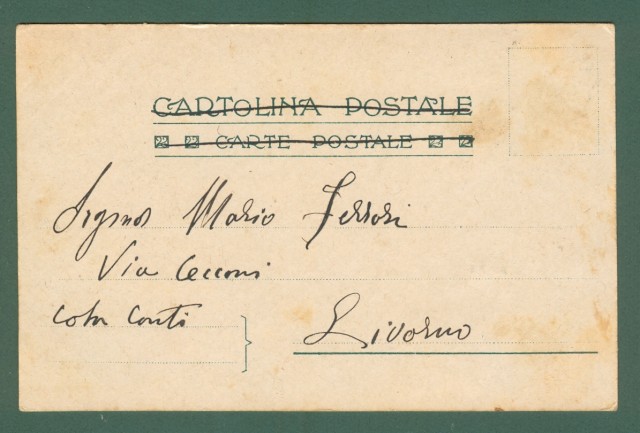 CARTOLINA POSTALE
CARTE POSTALE
Signor Mario Ferrari
Via Cecconi
Conti
Livorno